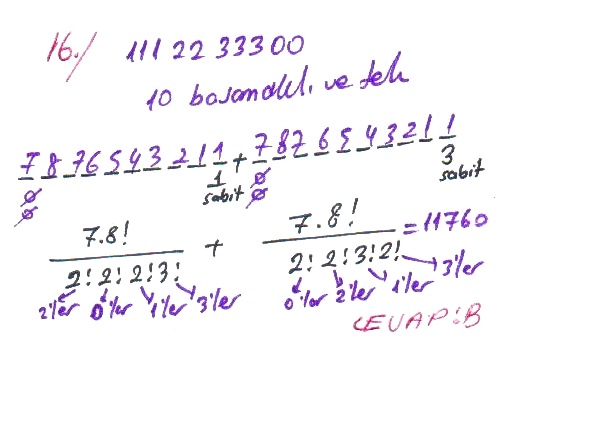 16./ 111 22 333 00
10 basamaklı ve tek
7 8 7 6 5 4 3 2 1 1 + 7 8 7 6 5 4 3 2 1 1
0 1 0 3
0 sabit 0 sabit
7.8! / 2! 2! 2! 3! + 7.8! / 2! 2! 3! 2! = 11760
2'ler 0'lar 1'ler 3'ler 0'lar 2'ler 1'ler 3'ler
CEVAP:B